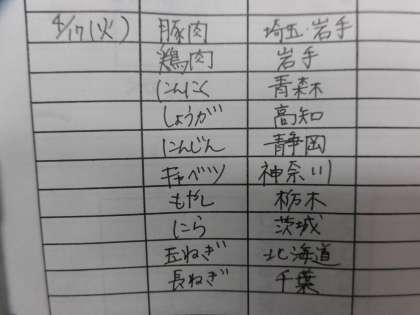 4/17(火) 豚肉 埼玉・岩手
鶏肉 岩手
にんにく 青森
しょうが 高知
にんじん 静岡
キャベツ 神奈川
もやし 栃木
にら 茨城
玉ねぎ 北海道
長ねぎ 千葉